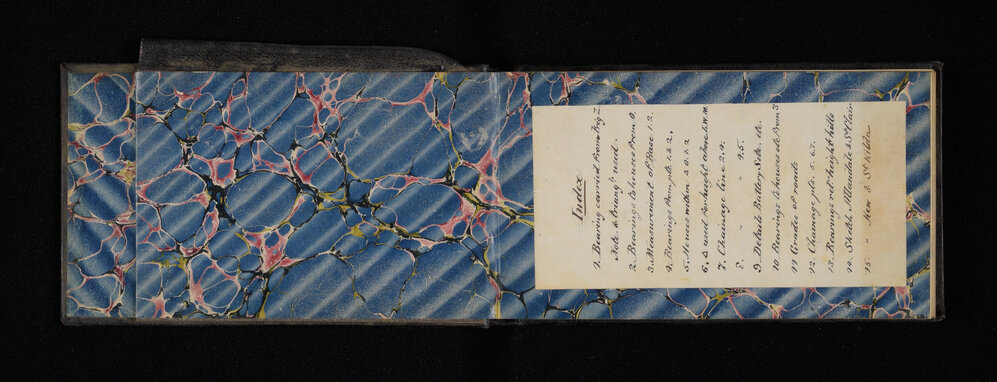 Index
1. Bearing carried from Trig Z.
Note to triang'n used.
2. Bearings to houses from O.
3. Measurement of Base 1.2.
4. Bearings from pts 1 & 2.
5. Houses within
6. Δ used for height above L.W.M.
7. Chainage line 2.4.
8. " " 4.5.
9. Details Battery Site. etc.
10. Bearings to houses etc from 3
11. Grades of roads
12. Chainage pts 5. 6.7.
13. Bearing not height hills
14. Sketch Allandale & St Clair
15. " Kew & St Kilda